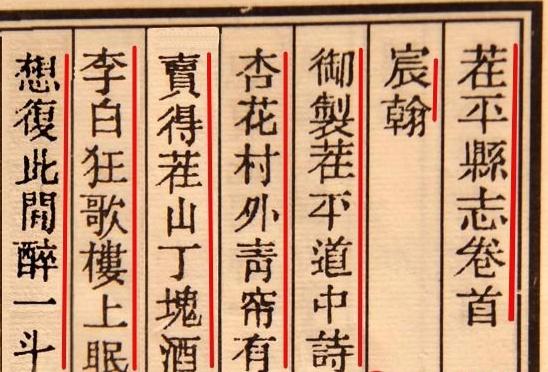 茬平縣志卷首
宸翰
御製茬平道中詩
杏花村外靑帘有
賣得茬山丁塊酒
李白狂歌樓上眠
想復此間醉一斗